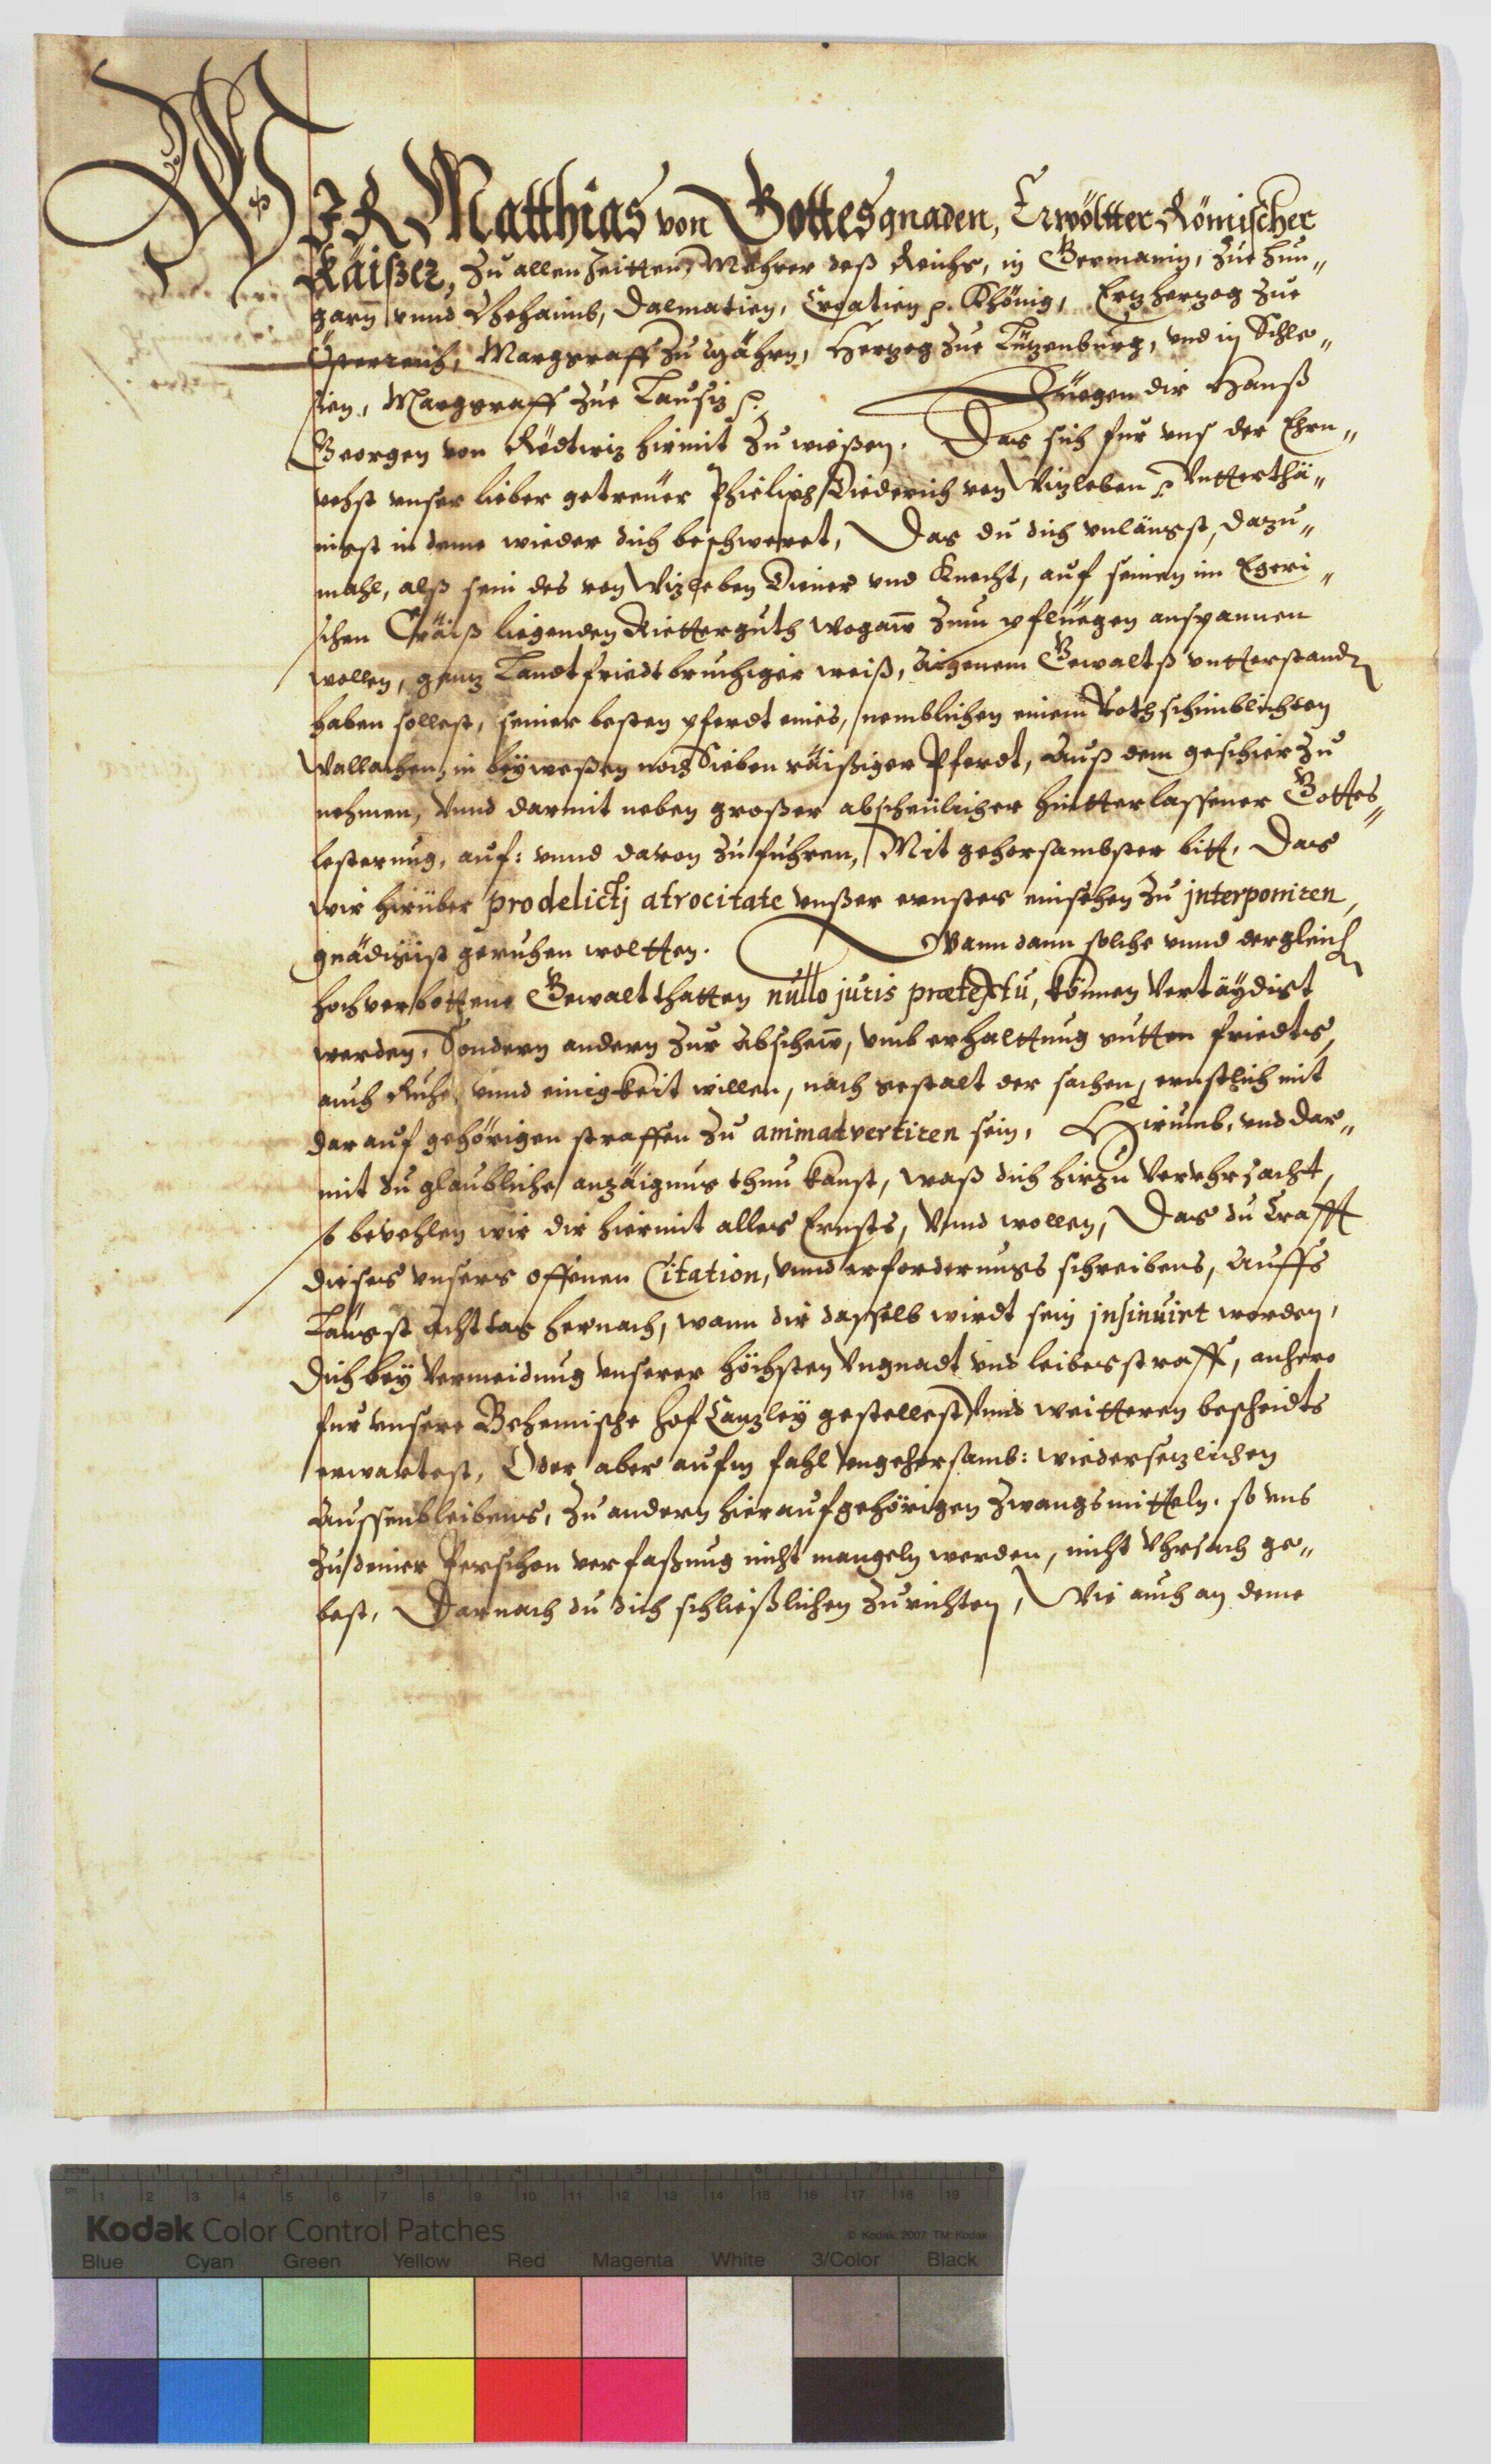 WIR Matthias von Gottes gnaden, Erwöltter Römischer
Käißer, Zu allen Zeitten, Mehrer deß Reichs, in Germanien, Zue Hun„
garn vnnd Beheimb, Dalmatien, Croatien p. Khönig, Ertzherzog Zue
Österreich, Marggraff Zu Mähren, Herzog Zue Lüzenburg, vnd in Schle„
sien, Marggraff Zue Lausiz p. Füegen dir Hanß
Georgen von Redtwiz hirmit Zu wießen. Das sich fur vns der Ehrn„
vehst vnser lieber getreuer Philips Diederich von Wizleben p. Vntterthä„
nigst in deme wieder dich beschweret, Das du dich vnlängst, dazu„
mahl, alß sein des von Wizleben Diener vnd Knecht, auf seinen im Egeri„
schen Cräiß liegenden Rietterguth Wogaw Zum pfluegen anspannen
wollen, ganz Landtfriedtbruchiger weiß, äigenem Gewaltß vntterstanden
haben sollest, seiner besten pferdt eines, nemblichen einem Roth schimblichten
Wallachen, in beyweßen noch Sieben räißiger Pferdt, Auß dem geschier Zu
nehmen, Vnnd darmit neben großer abscheulicher hintterlassener Gottes„
lesterung, auf: vnnd davon Zufuhren, Mit gehorsambster bitt, Das
wir hirüber pro delictj atrocitate vnßer ernstes einsehen Zu jnterponiren,
gnädigist geruhen woltten. Wann dann solche vnnd dergleichen
hochverbottene Gewaltthatten nullo juris prætextu, können Vertäydigt
werden, Sondern andern Zur Abschew, vmb erhalttung gutten friedts,
auch Ruhe vnnd einigkeit willen, nach gestalt der sachen, ernstlich mit
darauf gehörigen straffen Zu animadvertiren sein, Hirumb, vnd dar„
mit du glaubliche anzäigung thun kanst, waß dich hirzu Verursacht,
so bevehlen wir dir hiermit alles Ernsts, Vnnd wollen, Das du Crafft
dieses vnsers offenen Citation, vnnd erforderungs schreibens, Auffs
Längst Acht tag hernach, wann dir dasselb wirdt sein jnsinuirt worden,
Dich bey Vermeidung vnserer höchsten Vngnadt vnd leibesstraff, anhero
fur vnsere Behemische Hof Canzley gestellest, Vnnd weitteren bescheidts
erwartest, Oder aber aufm fahl Vngehorsamb: wiedersezlichen
Aussenbleibens, Zu andern hierauf gehörigen Zwangsmitteln, so vns
Zu deiner Perschon verfaßung nicht mangeln werden, nicht Vhrsach ge„
best, Darnach du dich schließlichen Zurichten, Wie auch an deme
Kodak Color Control Patches
© Kodak, 2007 TM: Kodak
Blue Cyan Green Yellow Red Magenta White 3/Color Black